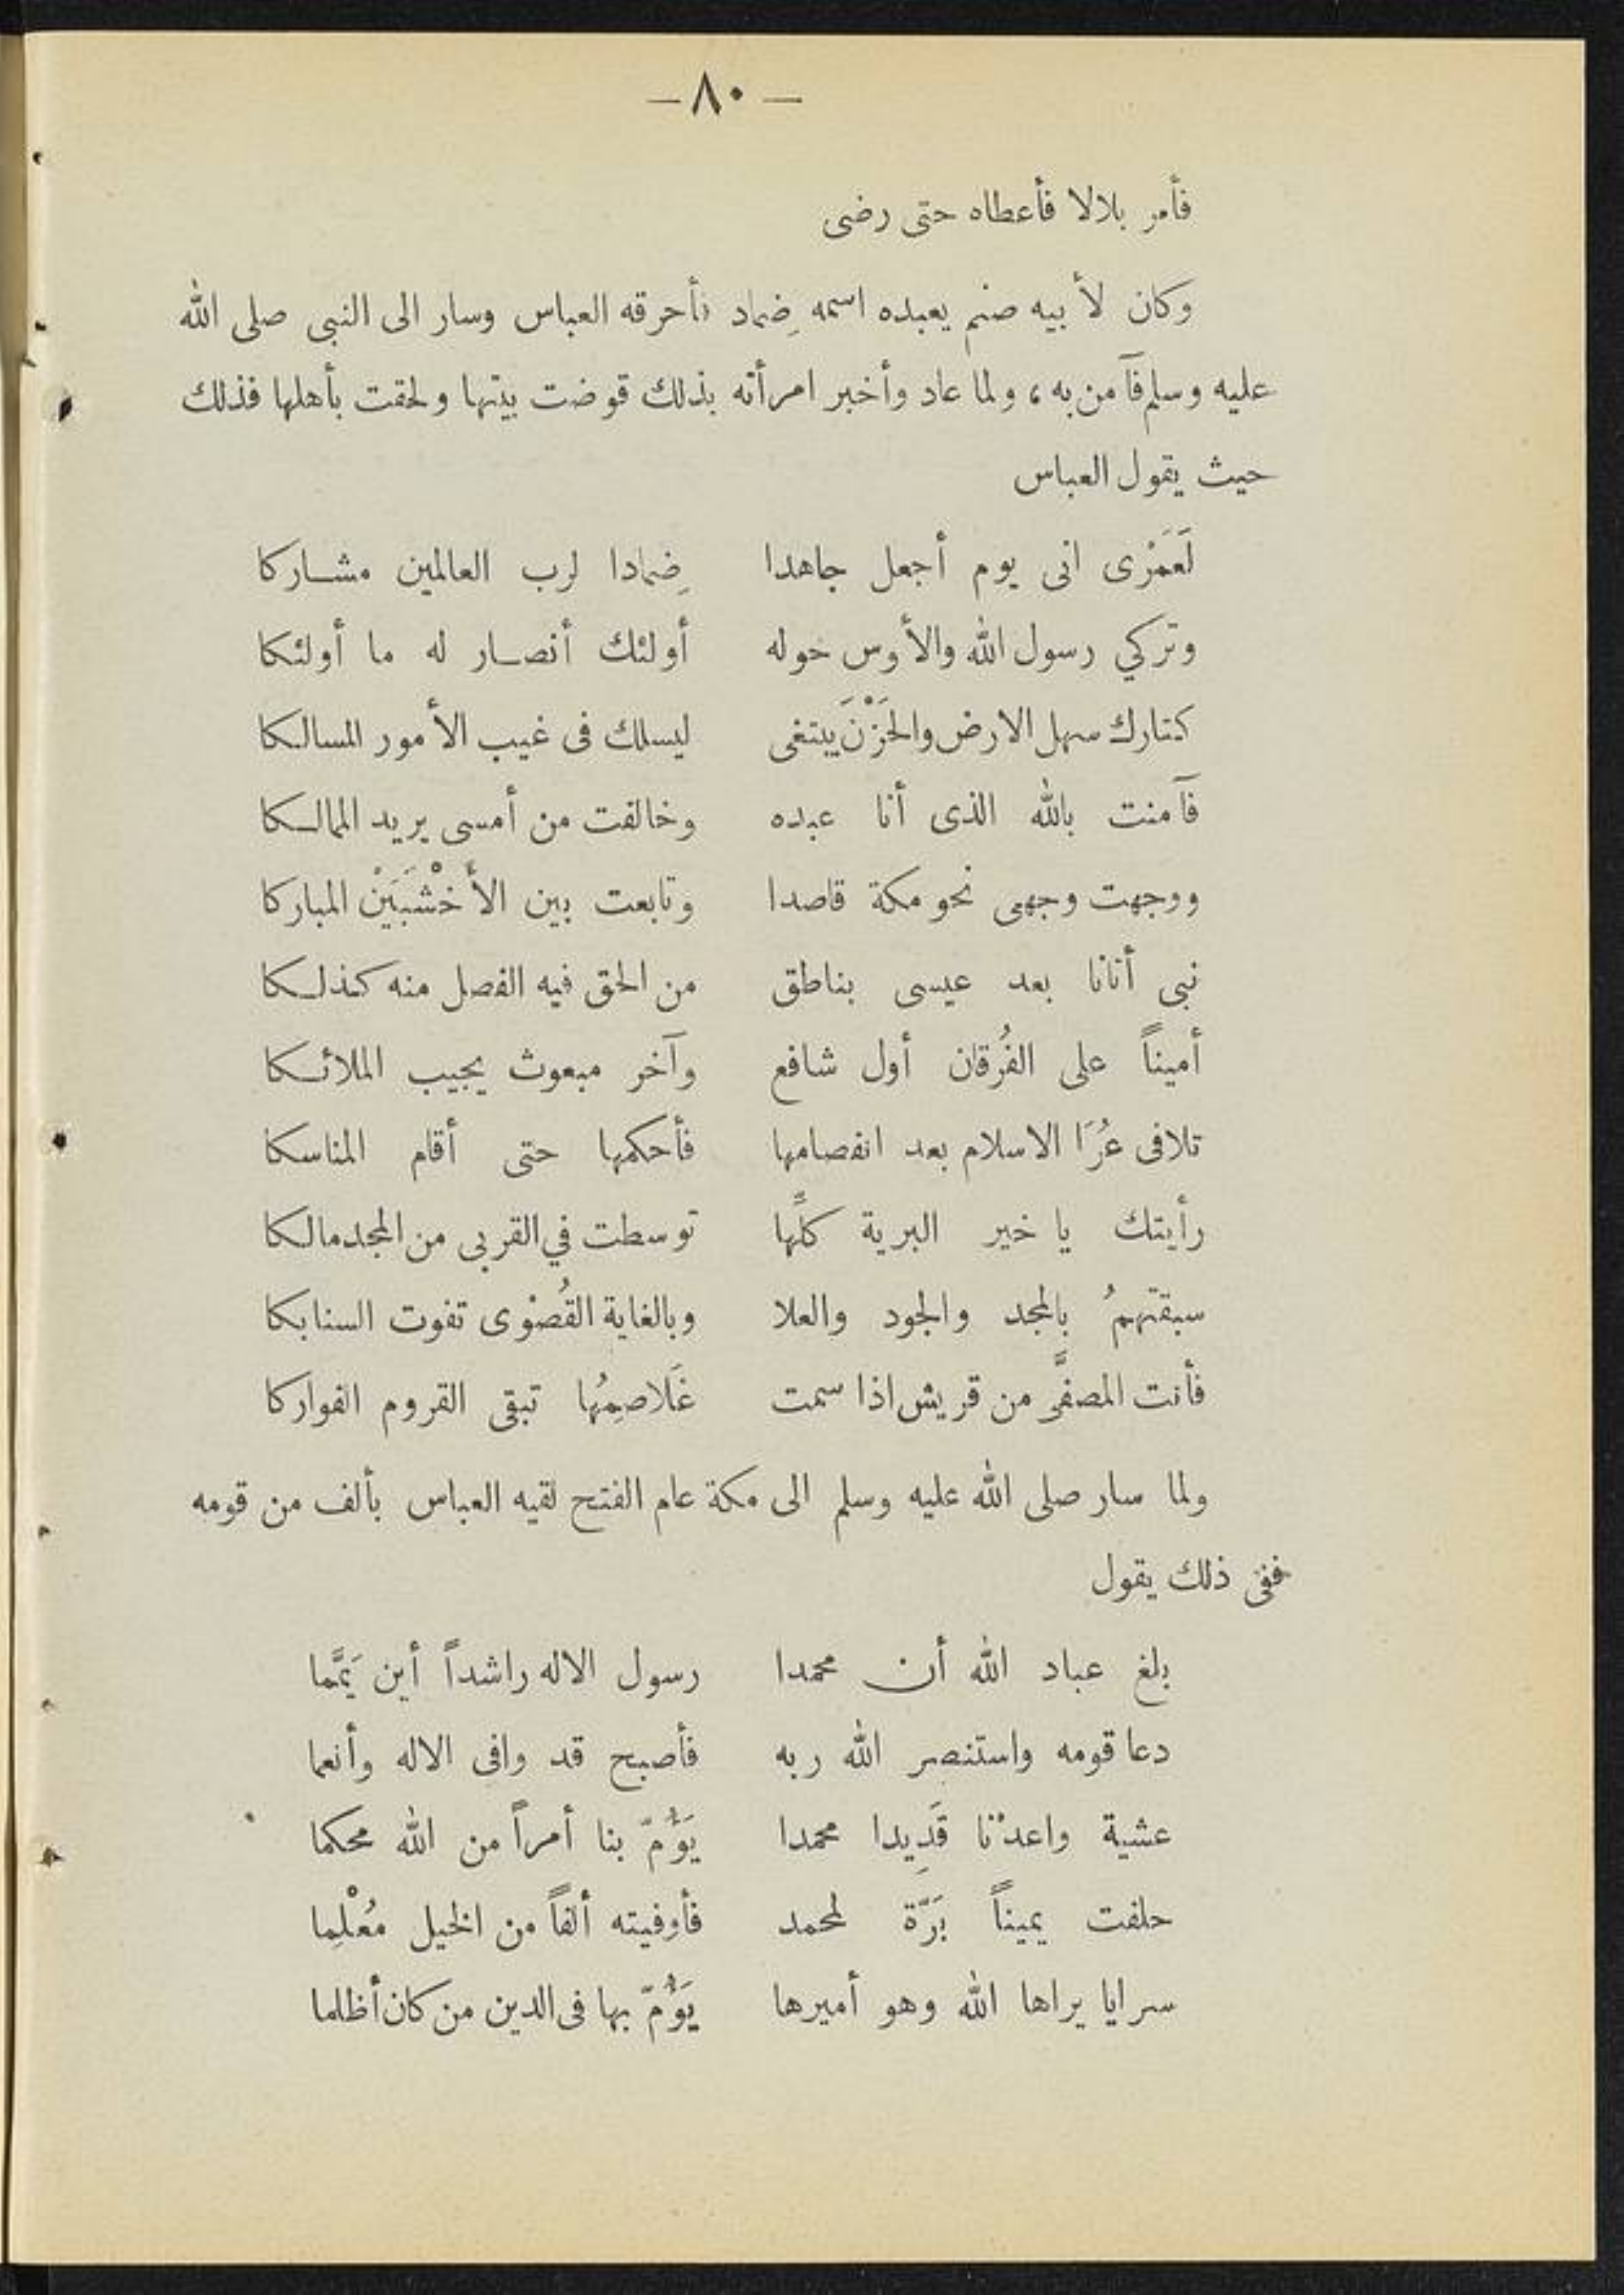 — ٨٠ —
فأمر بلالا فأعطاه حتى رضى
وكان لأبيه صنم يعبده اسمه ضِماد فأحرقه العباس وسار الى النبى صلى الله
عليه وسلم فآمن به ، ولما عاد وأخبر امرأته بذلك قوضت بيتها ولحقت بأهلها فذلك
حيث يقول العباس
لَعَمْرى انى يوم أجعل جاهدا ضِمادا لرب العالمين مشاركا
وتركي رسول الله والأوس حوله أولئك أنصار له ما أولئكا
كتارك سهل الارض والحَزْنَ يبتغى ليسلك فى غيب الأمور المسالكا
فآمنت بالله الذى أنا عبده وخالفت من أمسى يريد الممالكا
ووجهت وجهى نحو مكة قاصدا وتابعت بين الأخْشَبَيْن المباركا
نبى أتانا بعد عيسى بناطق من الحق فيه الفصل منه كذلكا
أميناً على الفُرقان أول شافع وآخر مبعوث يجيب الملائكا
تلافى عُرَا الاسلام بعد انفصامها فأحكمها حتى أقام المناسكا
رأيتك يا خير البرية كلِّها توسطت في القربى من المجد مالكا
سبقتهمُ بالمجد والجود والعلا وبالغاية القُصْوى تفوت السنابكا
فأنت المصفَّى من قريش اذا سمت غَلاصِمُها تبقى القروم الفواركا
ولما سار صلى الله عليه وسلم الى مكة عام الفتح لقيه العباس بألف من قومه
ففى ذلك يقول
بلغ عباد الله أن محمدا رسول الاله راشداً أين يَمَّما
دعا قومه واستنصر الله ربه فأصبح قد وافى الاله وأنعما
عشية واعدْنا قَدِيدا محمدا يَؤُمّ بنا أمراً من الله محكما
حلفت يميناً بَرَّة لمحمد فأوفيته ألفاً من الخيل مُعْلِما
سرايا يراها الله وهو أميرها يَؤُمّ بها فى الدين من كان أظلما